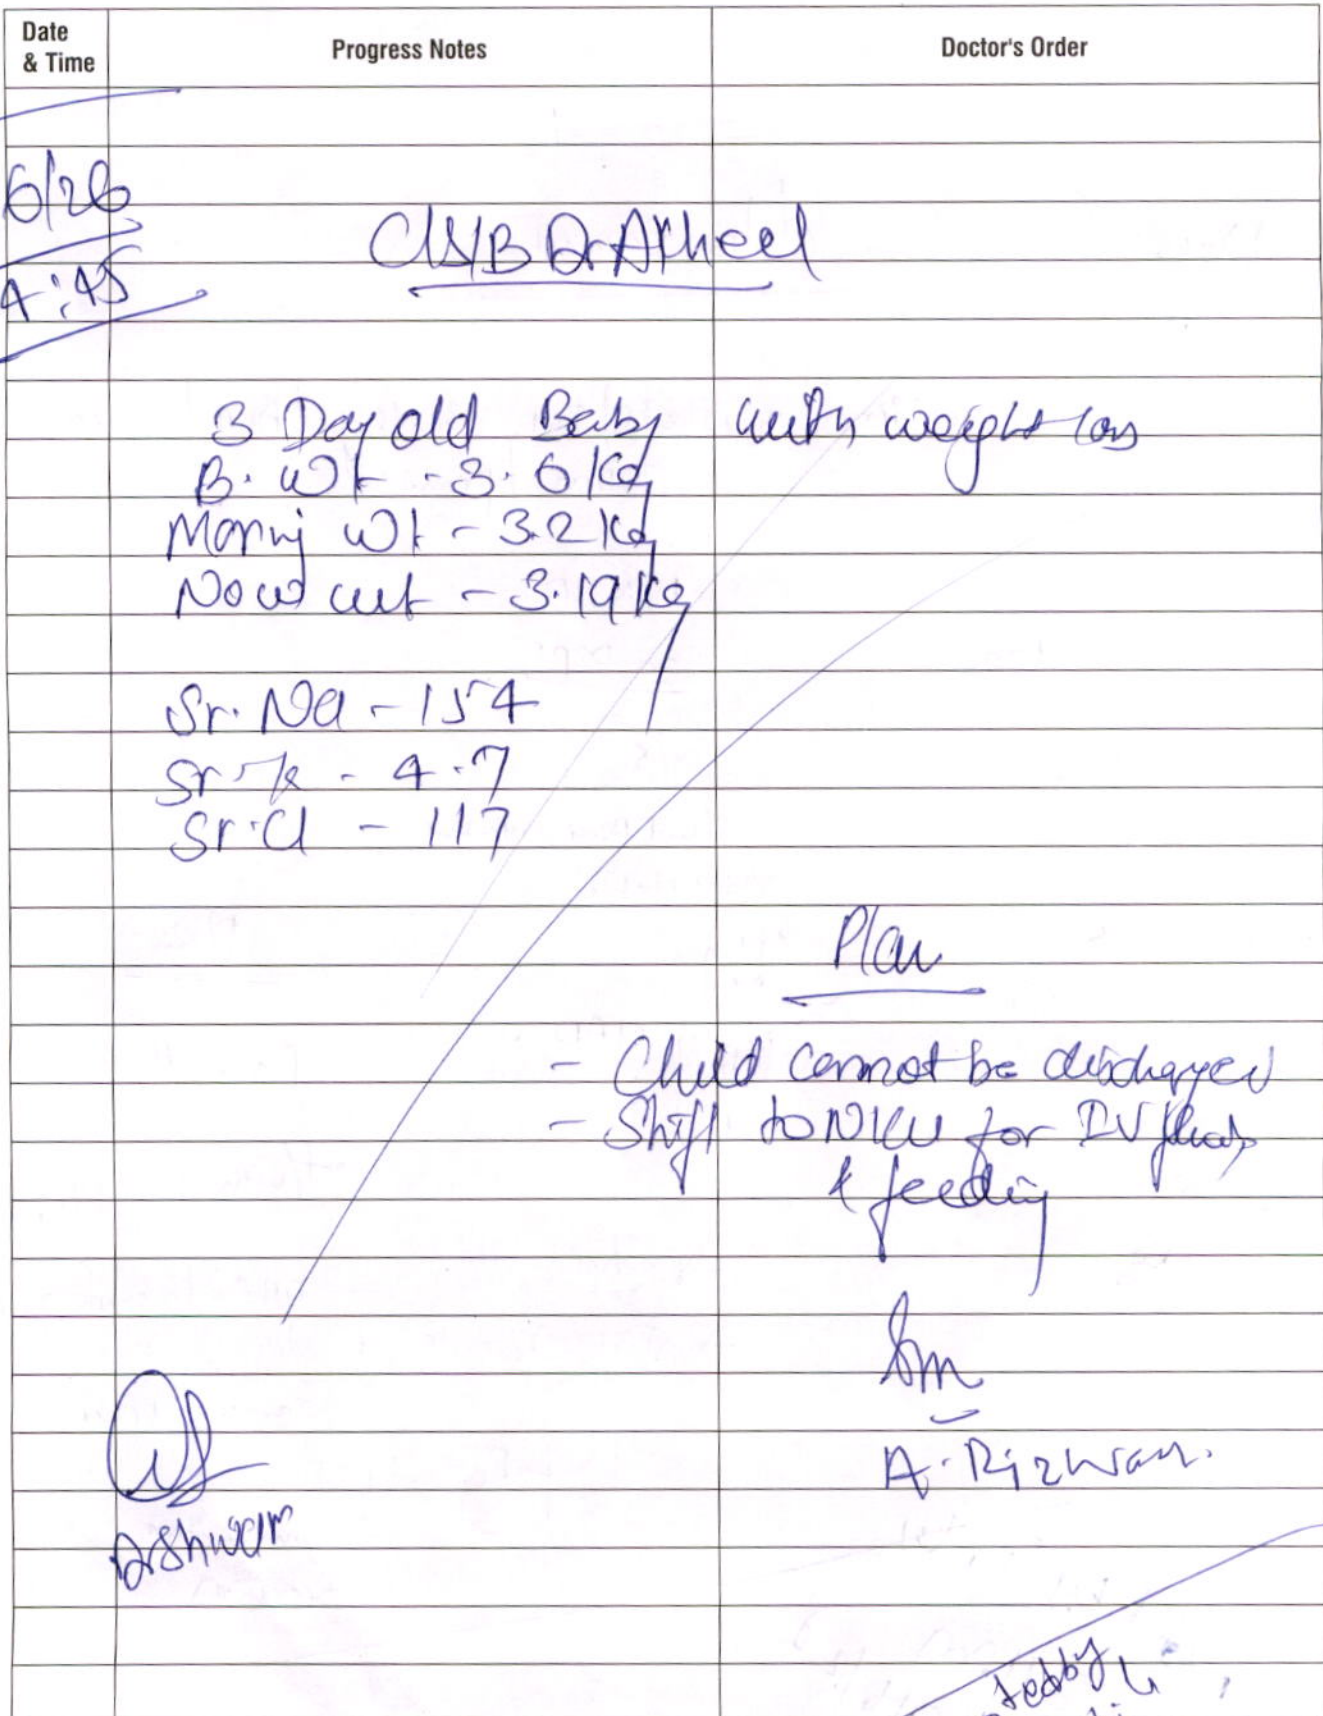 Date & Time
Progress Notes
Doctor's Order
6/26
4:45
C/S/B Dr Atheel
3 Day old Baby with weight loss
B. Wt - 3.6 Kg
Morning Wt - 3.2 Kg
Now wt - 3.19 Kg
Sr. Na - 154
Sr. K - 4.7
Sr. Cl - 117
Plan
- Child cannot be discharged
- Shift to NICU for IV fluids
& feeding
A. Rizwan.